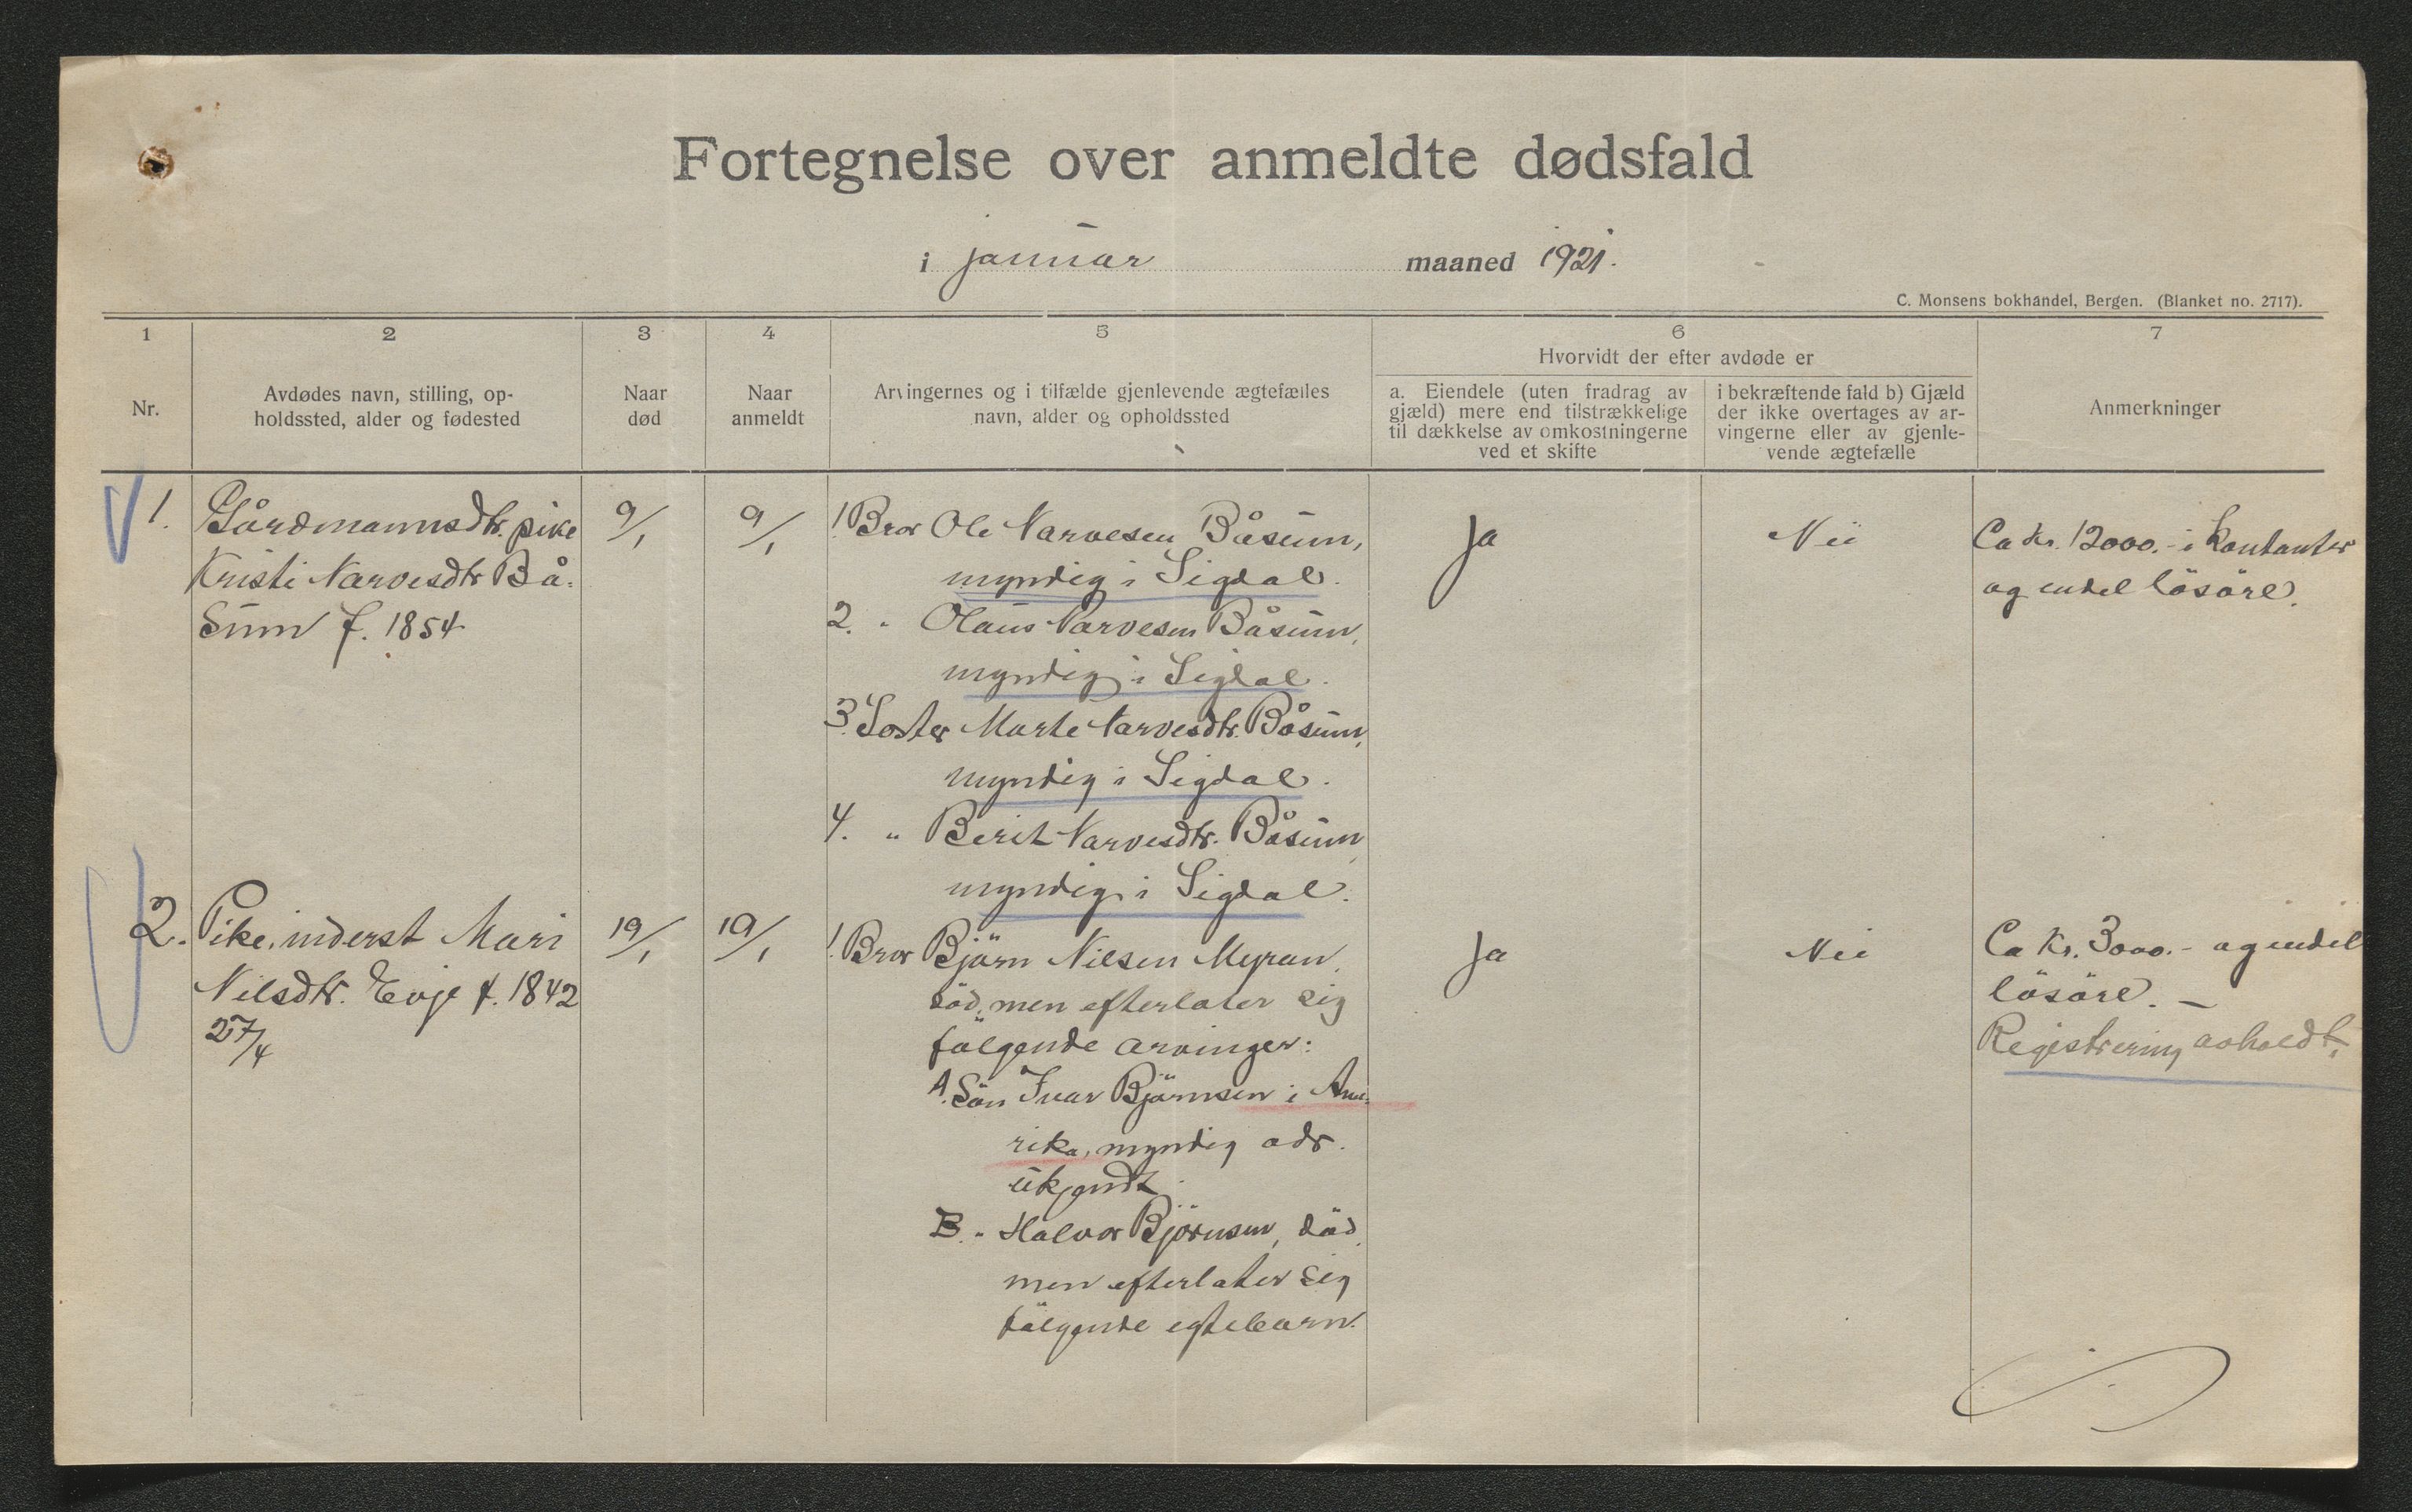 Fortegnelse over anmeldte dødsfald
i januar maaned 1921.
C. Monsens bokhandel, Bergen. (Blanket no. 2717).
1
2
3
4
5
6
7
Nr.
Avdødes navn, stilling, op-
holdssted, alder og fødested
Naar
død
Naar
anmeldt
Arvingernes og i tilfælde gjenlevende ægtefælles
navn, alder og opholdssted
Hvorvidt der efter avdøde er
a. Eiendele (uten fradrag av
gjæld) mere end tilstrækkelige
til dækkelse av omkostningerne
ved et skifte
i bekræftende fald b) Gjæld
der ikke overtages av ar-
vingerne eller av gjenle-
vende ægtefælle
Anmerkninger
1.
Gårdmannsdtr. pike
Kristi Narvesdtr Bå-
sum f. 1854
9/1
9/1
1 Bror Ole Narvesen Båsum,
myndig i Sigdal.
2. " Olaus Narvesen Båsum,
myndig i Sigdal.
3. Søster Marte Narvesdtr. Båsum,
myndig i Sigdal.
4. " Berit Narvesdtr. Båsum,
myndig i Sigdal.
Ja
Nei
Ca kr. 12000.- i kontanter
og endel løsøre.
2.
Pike, inderst Mari
Nilsdtr. Evje f. 1842
27/4
19/1
19/1
1. Bror Bjørn Nilsen Myran,
død, men efterlater sig
følgende arvinger:
A. Søn Ivar Bjørnsen i Ame-
rika, myndig adr.
ukjendt.
B. " Halvor Bjørnsen, død,
men efterlater sig
følgende egtebarn.
Ja
Nei
Ca Kr. 3000.- og endel
løsøre. -
Registrering avholdt.